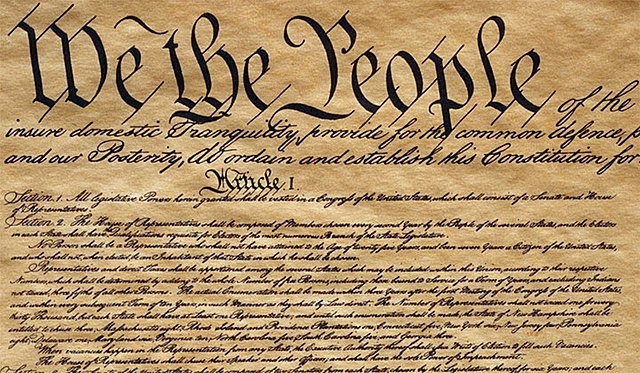 We the People of the
insure domestic Tranquility, provide for the common defence, p
and our Posterity, do ordain and establish this Constitution for
Article. I.
Section. 1. All legislative Powers herein granted shall be vested in a Congress of the United States, which shall consist of a Senate and House
of Representatives.
Section. 2. The House of Representatives shall be composed of Members chosen every second Year by the People of the several States, and the Electors
in each State shall have the Qualifications requisite for Electors of the most numerous Branch of the State Legislature.
No Person shall be a Representative who shall not have attained to the Age of twenty five Years, and been seven Years a Citizen of the United States,
and who shall not, when elected, be an Inhabitant of that State in which he shall be chosen.
Representatives and direct Taxes shall be apportioned among the several States which may be included within this Union, according to their respective
Numbers, which shall be determined by adding to the whole Number of free Persons, including those bound to Service for a Term of Years, and excluding Indians
not taxed, three fifths of all other Persons. The actual Enumeration shall be made within three Years after the first Meeting of the Congress of the United States,
and within every subsequent Term of ten Years, in such Manner as they shall by Law direct. The Number of Representatives shall not exceed one for every
thirty Thousand, but each State shall have at Least one Representative; and until such enumeration shall be made, the State of New Hampshire shall be
entitled to chuse three, Massachusetts eight, Rhode Island and Providence Plantations one, Connecticut five, New York six, New Jersey four, Pennsylvania
eight, Delaware one, Maryland six, Virginia ten, North Carolina five, South Carolina five, and Georgia three.
When vacancies happen in the Representation from any State, the Executive Authority thereof shall issue Writs of Election to fill such Vacancies.
The House of Representatives shall chuse their Speaker and other Officers; and shall have the sole Power of Impeachment.